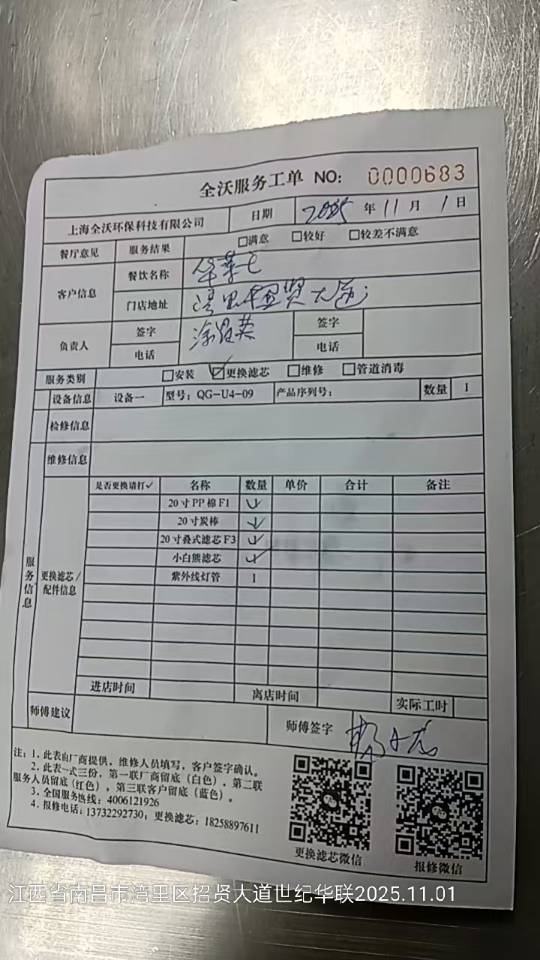 全沃服务工单 NO: 0000683
上海全沃环保科技有限公司 日期 2025 年 11 月 1 日
餐厅意见 服务结果 □满意 □较好 □较差不满意
客户信息 餐饮名称 华莱士
门店地址 湾里招贤大道
负责人 签字 签字
电话 电话
服务类别 □安装 ☑更换滤芯 □维修 □管道消毒
设备信息 设备一 型号: QG-U4-09 产品序列号: 数量 1
检修信息
维修信息
服务信息 更换滤芯/配件信息 是否更换请打✓ 名称 数量 单价 合计 备注
20寸PP棉F1 ✓
20寸炭棒 ✓
20寸叠式滤芯F3 ✓
小白熊滤芯 ✓
紫外线灯管 1
进店时间 离店时间 实际工时
师傅建议 师傅签字
注: 1. 此表由厂商提供, 维修人员填写, 客户签字确认。
2. 此表一式三份, 第一联厂商留底 (白色), 第二联
服务人员留底 (红色), 第三联客户留底 (蓝色)。
3. 全国服务热线: 4006121926
4. 报修电话: 13732292730; 更换滤芯: 18258897611
更换滤芯微信 报修微信
江西省南昌市湾里区招贤大道世纪华联2025.11.01